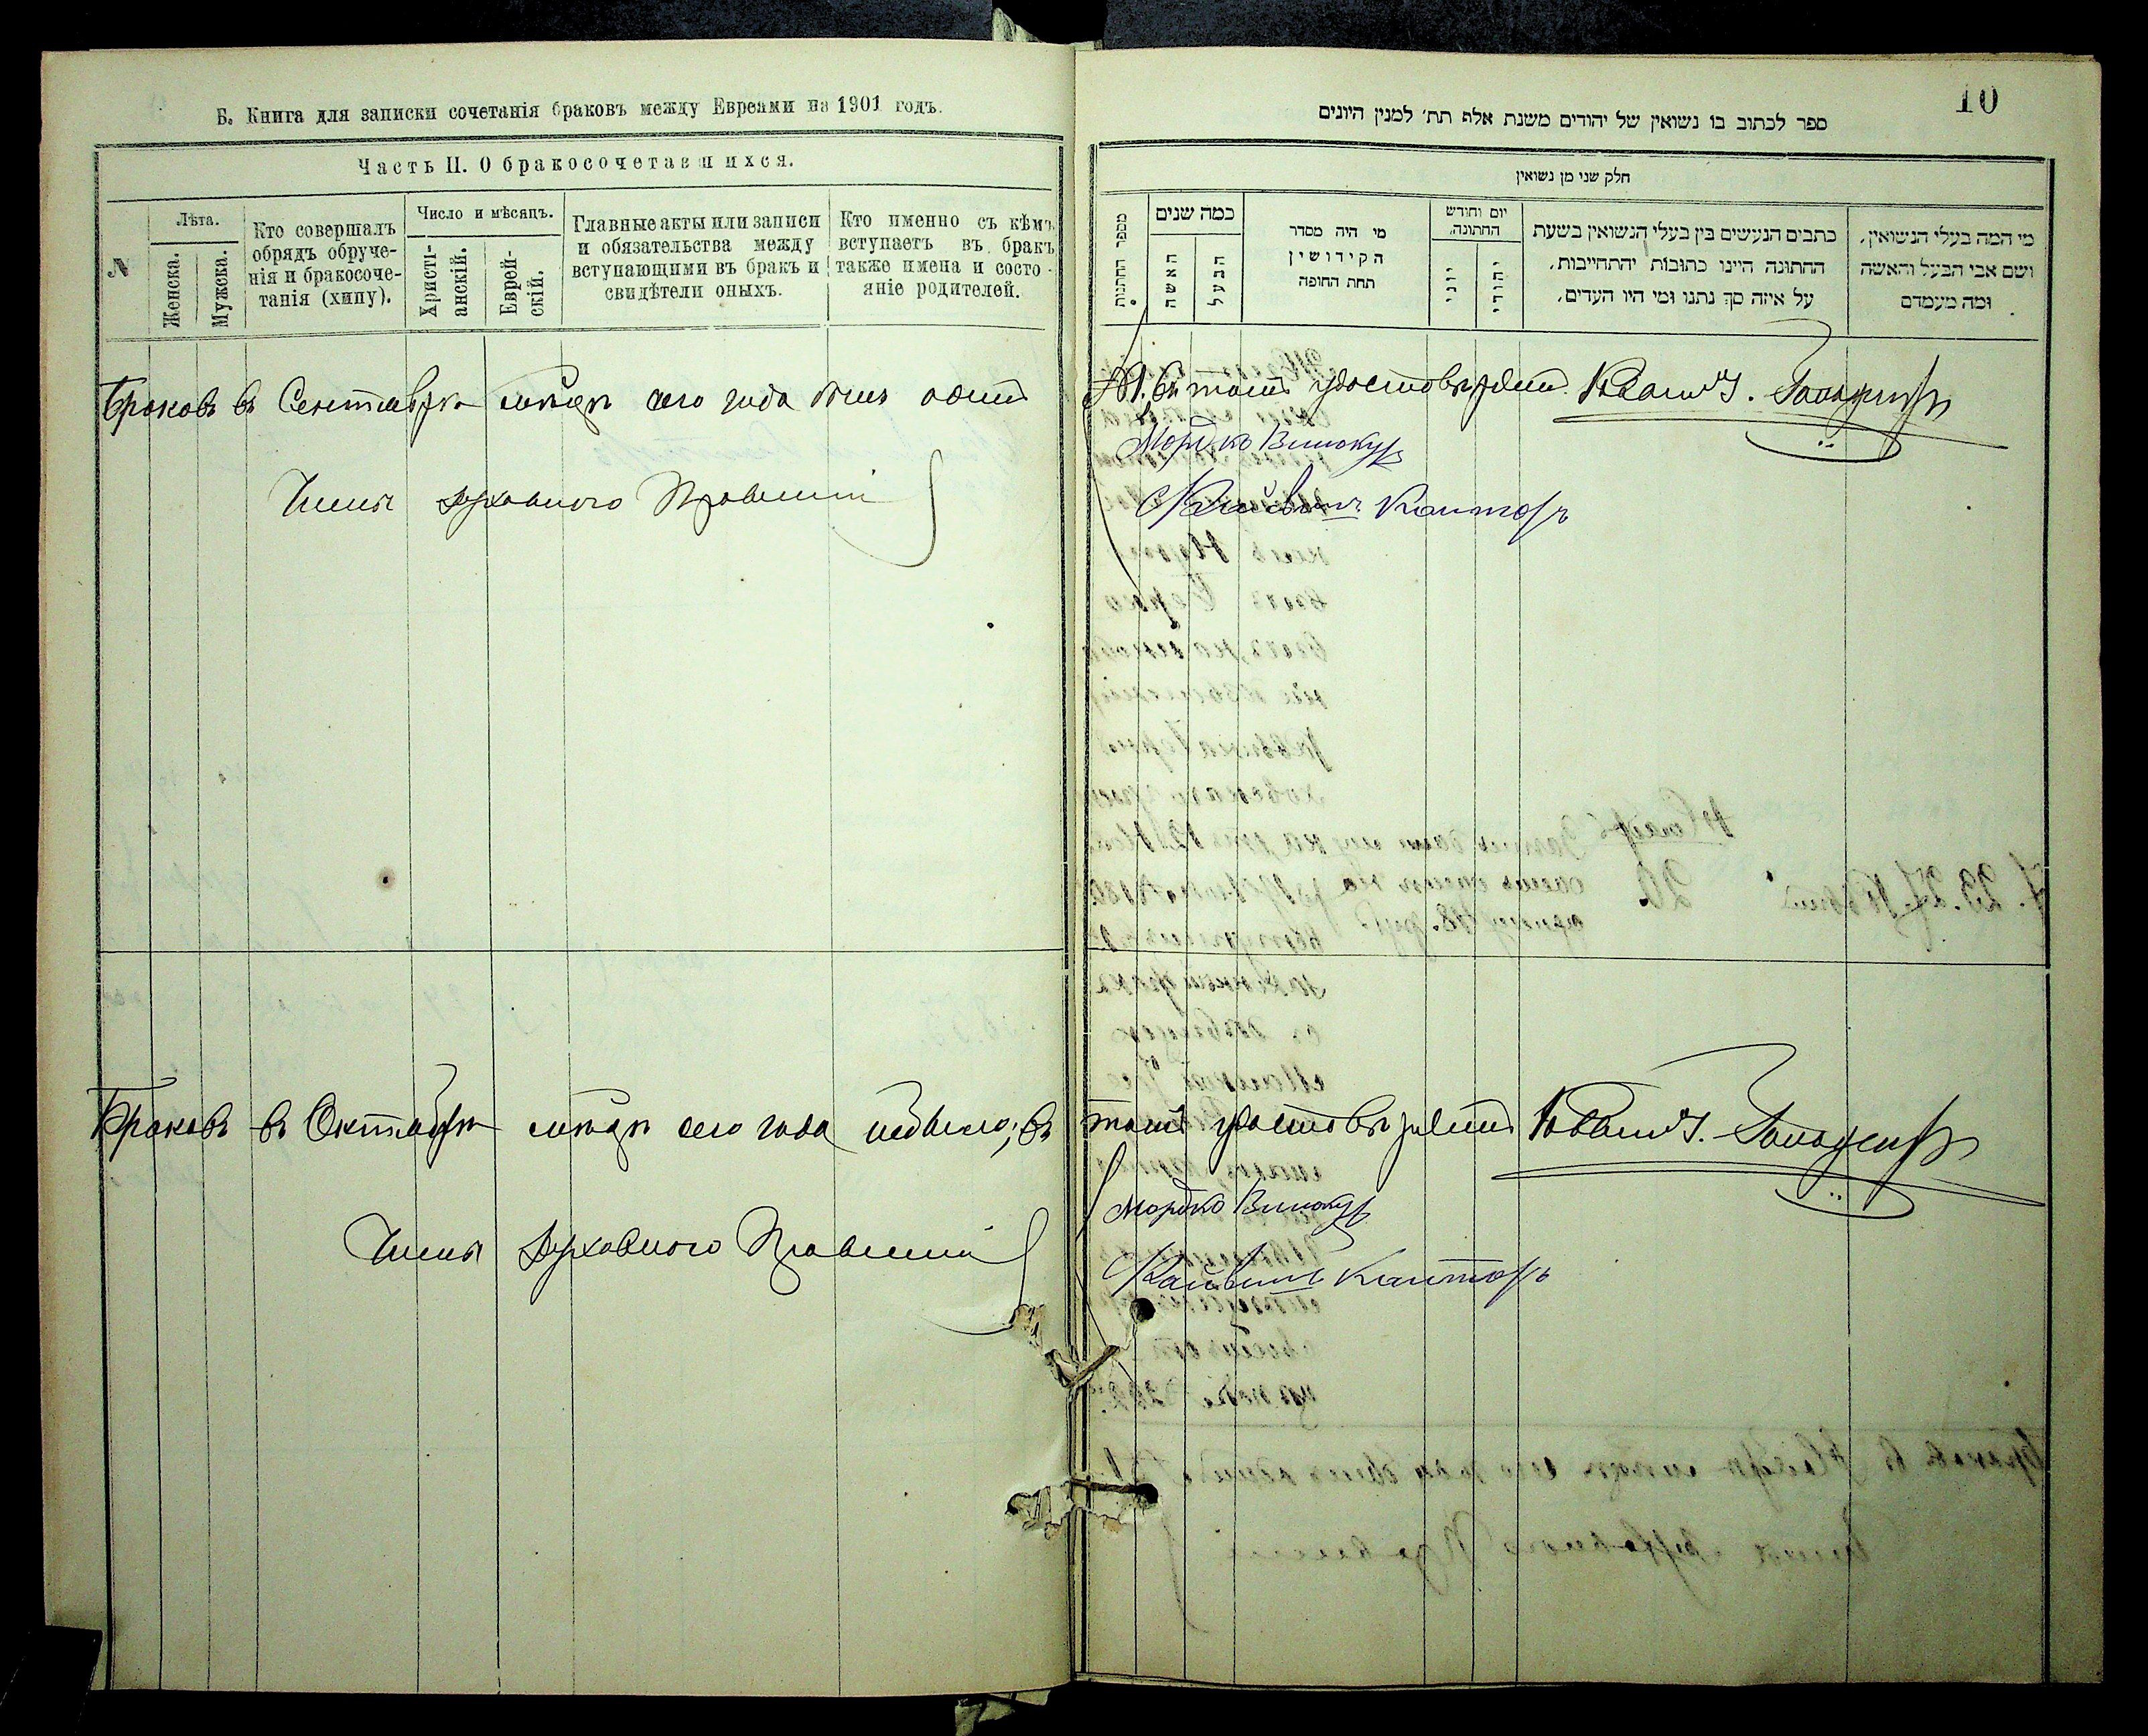 Б. Книга для записки сочетанія браковъ между Евреями на 1901 годъ.
Часть II. О бракосочетавшихся.
N
Лѣта.
Женска.
Мужска.
Кто совершалъ
обрядъ обруче-
нія и бракосоче-
танія (хипу).
Число и мѣсяцъ.
Христі-
анскій.
Еврей-
скій.
Главные акты или записи
и обязательства между
вступающими въ бракъ и
свидѣтели оныхъ.
Кто именно съ кѣмъ
вступаетъ въ бракъ
также имена и состо-
яніе родителей.
Браковъ въ Сентябрѣ мѣсяцѣ сего года былъ одинъ
Члены Духовного Правленія
Браковъ въ Октябрѣ мѣсяцѣ сего года небыло; въ
Члены Духовного Правленія
10
ספר לכתוב בו נשואין של יהודים משנת אלף תת׳ למנין היונים
חלק שני מן נשואין
מספר החתנות
כמה שנים
האשה
הבעל
מי היה מסדר
הקידושין
תחת החופה
יום וחודש
החתונה.
יוני
יהודי
כתבים הנעשים בין בעלי הנשואין בשעת
החתונה היינו כתובות יהתחייבות,
על איזה סך נתנו ומי היו העדים,
מי המה בעלי הנשואין,
ושם אבי הבעל והאשה
ומה מעמדם
№1. въ томъ удостовѣряемъ Раввинъ
Мордко Винокуръ
Канторъ
томъ удостовѣряемъ Раввинъ
Мордко Винокуръ
Канторъ